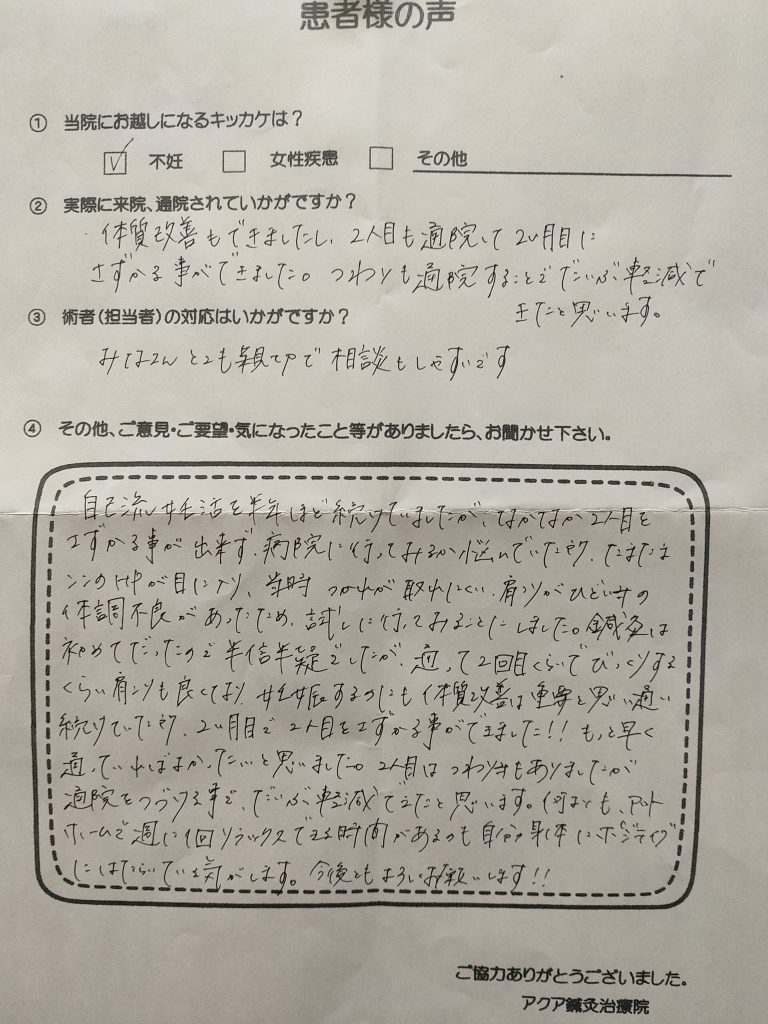 患者様の声
① 当院にお越しになるキッカケは？
不妊 女性疾患 その他
② 実際に来院、通院されていかがですか？
体質改善もできましたし、2人目も通院して2ヶ月目に
さずかる事ができました。つわりも通院することでだいぶ軽減で
きたと思います。
③ 術者（担当者）の対応はいかがですか？
みなさんとても親切で相談もしやすいです
④ その他、ご意見・ご要望・気になったこと等がありましたら、お聞かせ下さい。
自己流妊活を半年ほど続けていましたが、なかなか2人目を
さずかる事が出来ず、病院に行ってみるか悩んでいた所、たまたま
ここのHPが目に入り、当時つかれが取れにくい、肩コリがひどい等の
体調不良があったため、試しに行ってみることにしました。鍼灸は
初めてだったので半信半疑でしたが、通って2回目くらいでびっくりする
くらい肩コリも良くなり、妊娠するのにも体質改善は重要と思い通い
続けていた所、2ヶ月目で2人目をさずかる事ができました!!もっと早く
通っていればよかったいと思いました。2人目はつわり等もありましたが
通院をつづける事で、だいぶ軽減できたと思います。何よりも、アット
ホームで週に1回リラックスできる時間があるのも自分自身体にポジティブ
にはたらいている気がします。今後ともよろしくお願いします!!
ご協力ありがとうございました。
アクア鍼灸治療院